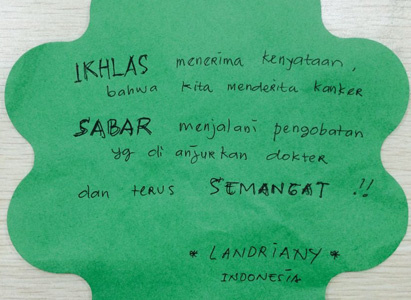 IKHLAS menerima kenyataan,
bahwa kita menderita kanker
SABAR menjalani pengobatan
yg di anjurkan dokter
dan terus SEMANGAT !!
* LANDRIANY *
INDONESIA